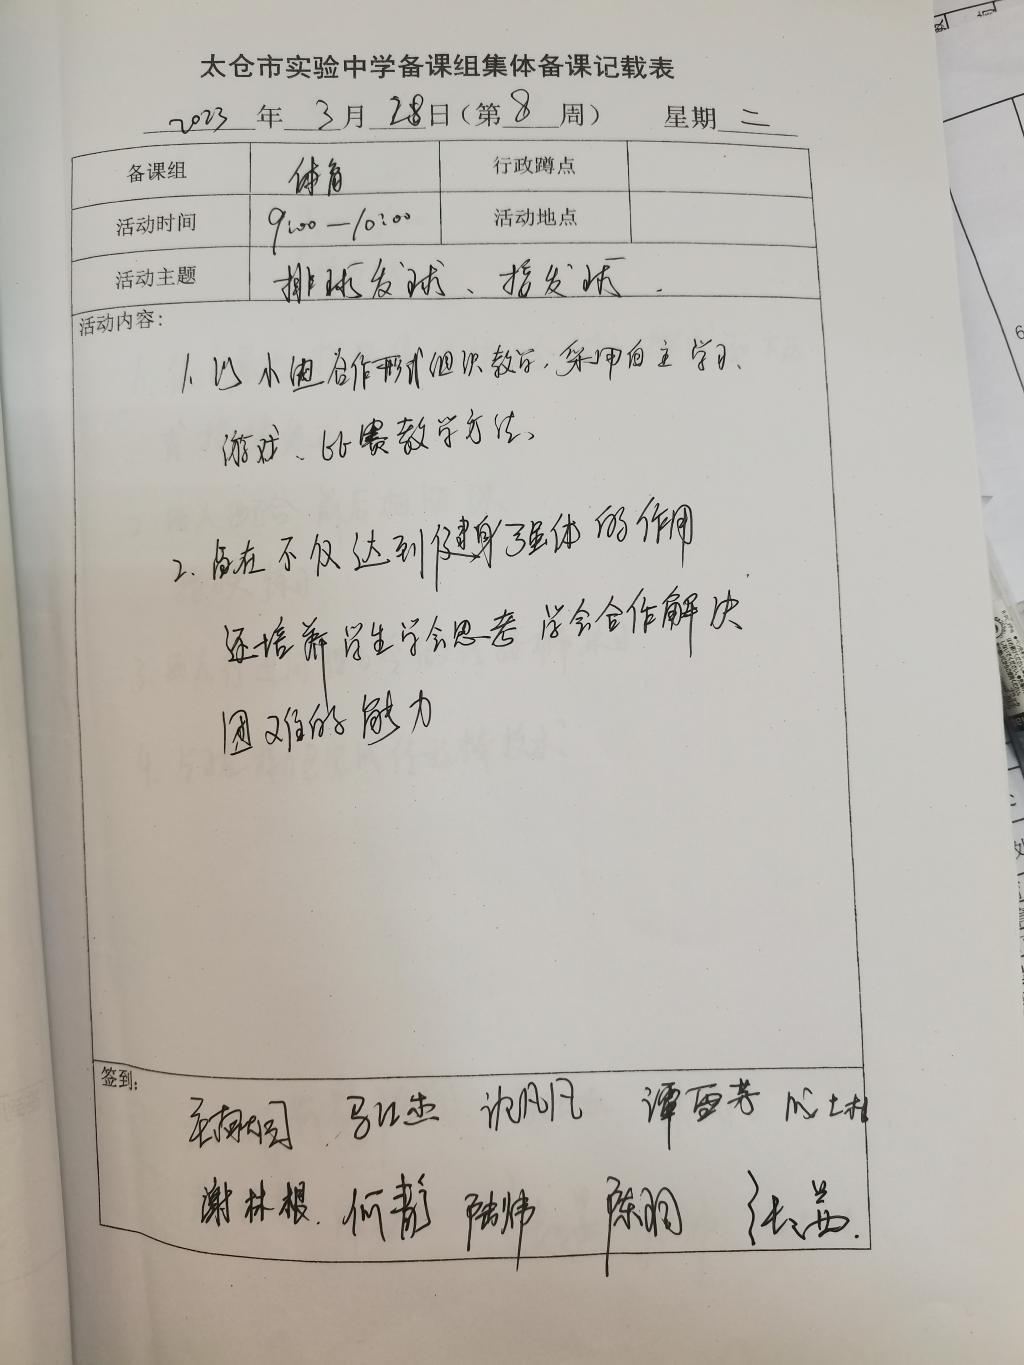 太仓市实验中学备课组集体备课记载表
2023年3月28日(第8周) 星期二
备课组 体育 行政蹲点
活动时间 9:00—10:00 活动地点
活动主题 排球发球、接发球.
活动内容:
1. 以小组合作形式组织教学,采用自主学习、
游戏、比赛教学方法、
2. 旨在不仅达到健身强体的作用
还培养学生学会思考 学会合作解决
困难的能力
签到:
马江杰 沈凡凡 谭雪芳
谢林根. 何静 陆炜 陈羽 张茜.